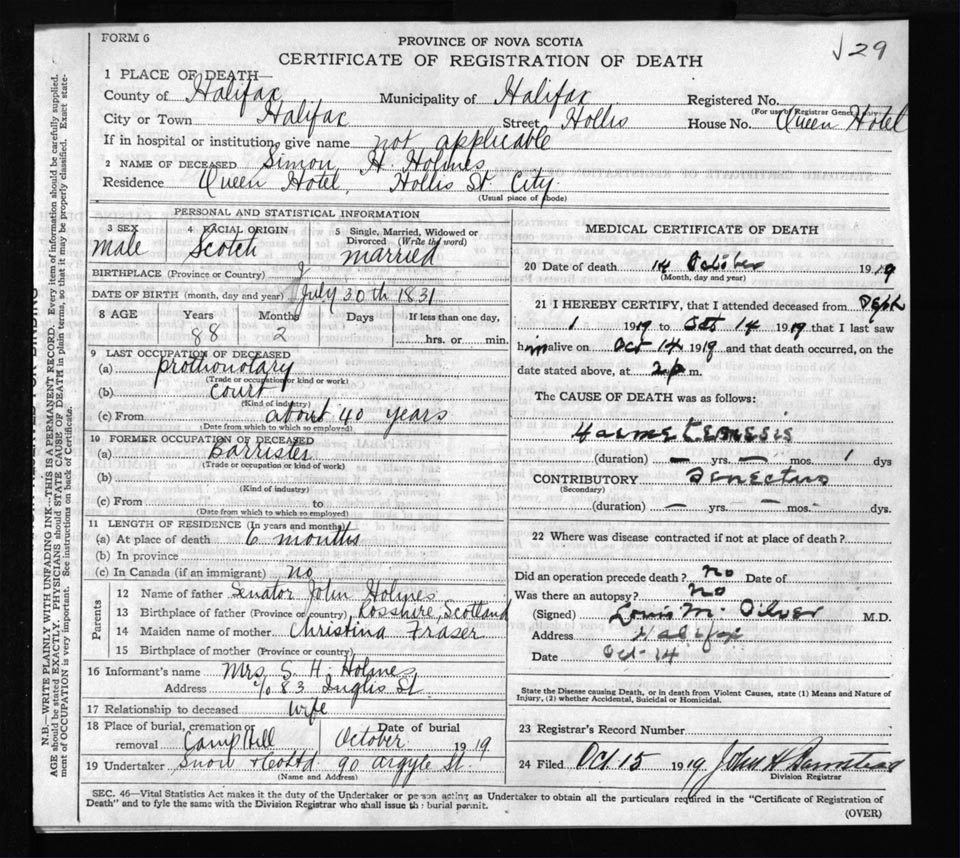 FORM 6
PROVINCE OF NOVA SCOTIA
29
CERTIFICATE OF REGISTRATION OF DEATH
1 PLACE OF DEATH—
County of Halifax Municipality of Halifax Registered No.
(For use of Registrar General only)
City or Town Halifax Street Hollis House No. Queen Hotel
If in hospital or institution, give name not applicable
2 NAME OF DECEASED Simon H. Holmes
Residence Queen Hotel, Hollis St. City
(Usual place of abode)
PERSONAL AND STATISTICAL INFORMATION
3 SEX 4 RACIAL ORIGIN 5 Single, Married, Widowed or Divorced (Write the word)
male Scotch married
BIRTHPLACE (Province or Country)
DATE OF BIRTH (month, day and year) July 30th 1831
8 AGE Years Months Days If less than one day,
88 2 hrs. or min.
9 LAST OCCUPATION OF DECEASED
(a) prothonotary
(Trade or occupation or kind or work)
(b) court
(Kind of industry)
(c) From about 40 years
(Date from which to which so employed)
10 FORMER OCCUPATION OF DECEASED
(a) Barrister
(Trade or occupation or kind of work)
(b)
(Kind of industry)
(c) From to
(Date from which to which so employed)
11 LENGTH OF RESIDENCE (In years and months)
(a) At place of death 6 months
(b) In province
(c) In Canada (if an immigrant) no
Parents
12 Name of father Senator John Holmes
13 Birthplace of father (Province or country) Rosshire, Scotland
14 Maiden name of mother Christina Fraser
15 Birthplace of mother (Province or country)
16 Informant's name Mrs S. H. Holmes
Address c/o 83 Inglis St.
17 Relationship to deceased wife
18 Place of burial, cremation or removal Camp Hill Date of burial October 1919
19 Undertaker Snow & Co Ltd. 90 Argyle St.
(Name and Address)
MEDICAL CERTIFICATE OF DEATH
20 Date of death 14 October 1919
(Month, day and year)
21 I HEREBY CERTIFY, that I attended deceased from Sept
1 1919 to Oct 14 1919 that I last saw
him alive on Oct 14 1919 and that death occurred, on the
date stated above, at 2 p m.
The CAUSE OF DEATH was as follows:
Haemetemesis
(duration) — yrs. — mos. 1 dys
CONTRIBUTORY Senectus
(Secondary)
(duration) — yrs. — mos. dys.
22 Where was disease contracted if not at place of death?
Did an operation precede death? no Date of
Was there an autopsy? no
(Signed) Louis M. Silver M.D.
Address Halifax
Date Oct-14
State the Disease causing Death, or in death from Violent Causes, state (1) Means and Nature of
Injury, (2) whether Accidental, Suicidal or Homicidal.
23 Registrar's Record Number
24 Filed Oct 15 1919 John H Barnstead
Division Registrar
SEC. 46—Vital Statistics Act makes it the duty of the Undertaker or person acting as Undertaker to obtain all the particulars required in the "Certificate of Registration of
Death" and to fyle the same with the Division Registrar who shall issue the burial permit.
(OVER)
N.B.—WRITE PLAINLY WITH UNFADING INK—THIS IS A PERMANENT RECORD. Every item of information should be carefully supplied.
AGE should be stated EXACTLY. PHYSICIANS should STATE CAUSE OF DEATH in plain terms, so that it may be properly classified. Exact state-
ment of OCCUPATION is very important. See instructions on back of Certificate.